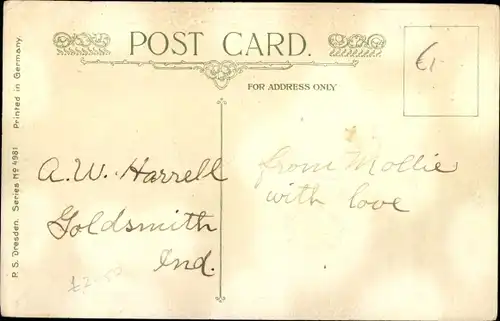 POST CARD.
FOR ADDRESS ONLY
A. W. Harrell
Goldsmith
Ind.
from Mollie
with love
P. S. Dresden. Series No 4981 Printed in Germany.